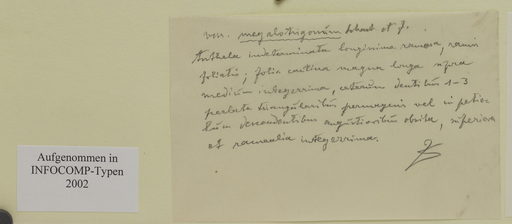 var. megalotrigonum Schout et J.
Anthela indeterminata longissima ramosa, ramis
foliatis; folia caulina magna longa supra
medium integerrima, ceterum dentibus 1-3
perlata triangularibus permagnis vel in petio-
lum descendentibus angustioribus obsita, superiora
et ramealia integerrima.
Aufgenommen in
INFOCOMP-Typen
2002